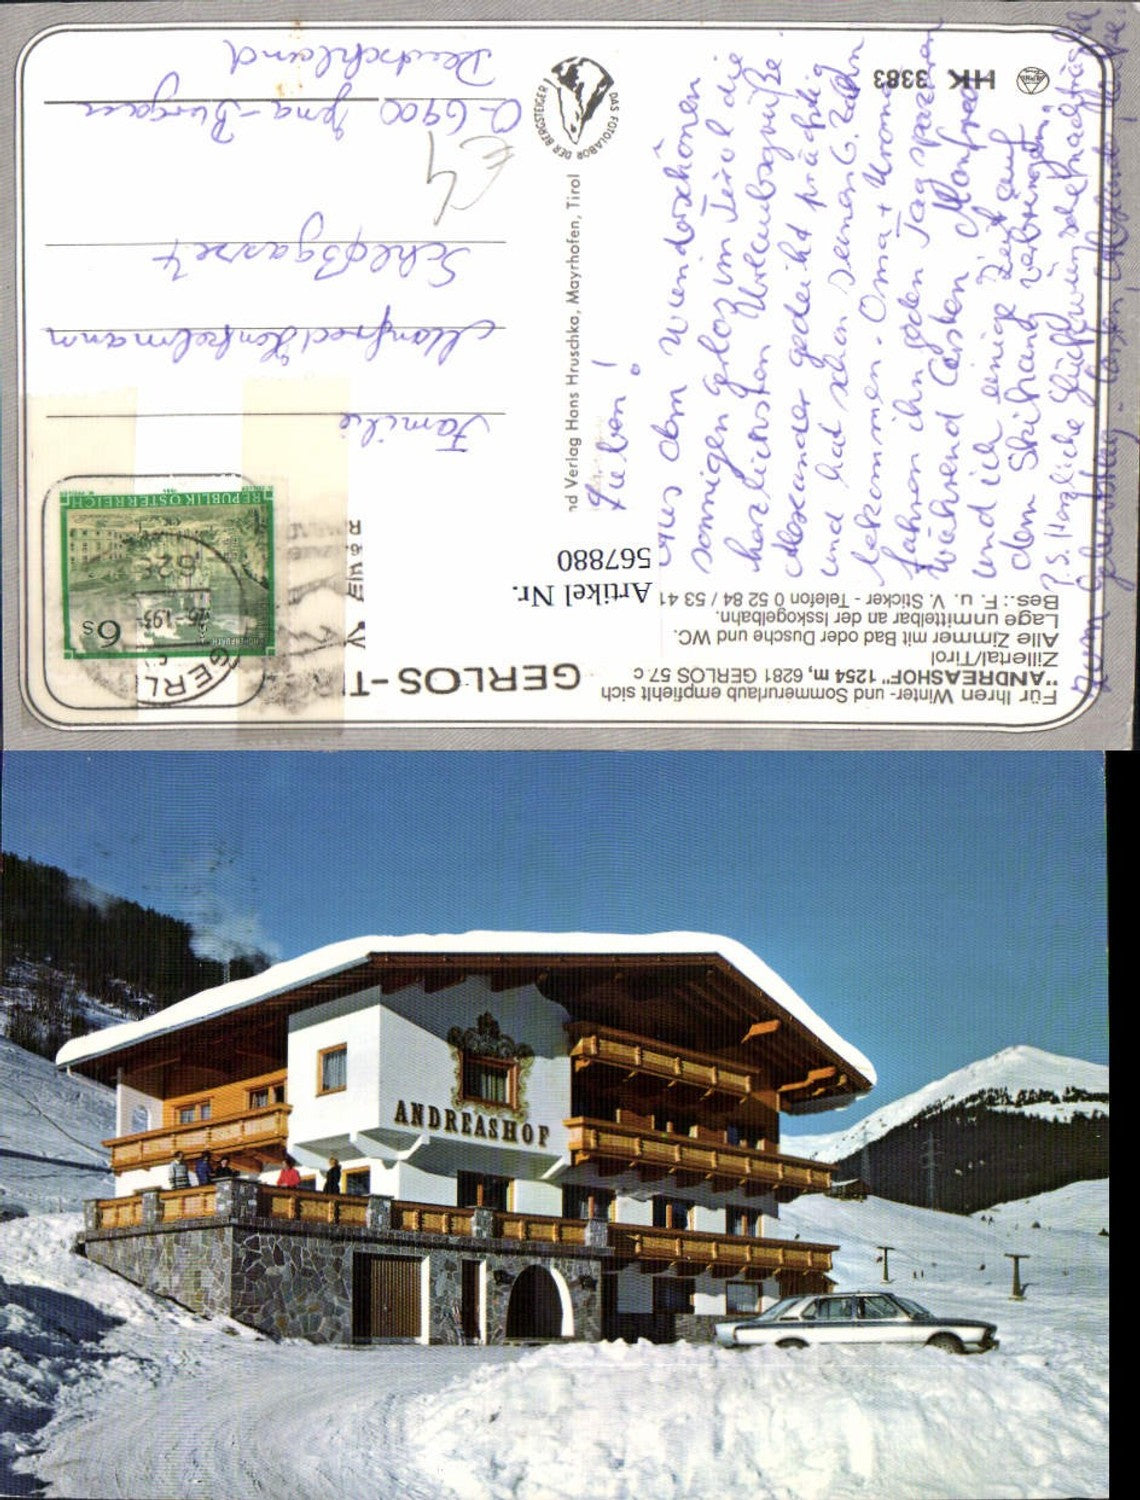 Für Ihren Winter- und Sommerurlaub empfiehlt sich
"ANDREASHOF" 1254 m, 6281 GERLOS 57 c
Zillertal/Tirol
Alle Zimmer mit Bad oder Dusche und WC.
Lage unmittelbar an der Isskogelbahn.
Bes.: F. u. V. Sticker - Telefon 0 52 84 / 53 41
GERLOS-TI
Artikel Nr.
567880
Lieben!
Aus dem wunderschönen
sonnigen Gerlos im Tirol die
herzlichsten Urlaubsgrüße.
Alexander gedeiht prächtig
und hat schon seinen 6. Zahn
bekommen. Oma +
fahren ihn jeden Tag spazieren
während Carsten, Manfred
und ich einige Zeit auf
dem Skihang verbringen.
P.S. Herzliche Glückwünsche nachträglich
zum Geburtstag
GERLO
628
6 S
REPUBLIK ÖSTERREICH
Familie
Manfred Henkelmann
Schloßgasse 4
O-6900 Jena-Burgau
Deutschland
€4
nd Verlag Hans Hruschka, Mayrhofen, Tirol
DAS FOTOLABOR DER BERGSTEIGER
HK 3383
ANDREASHOF